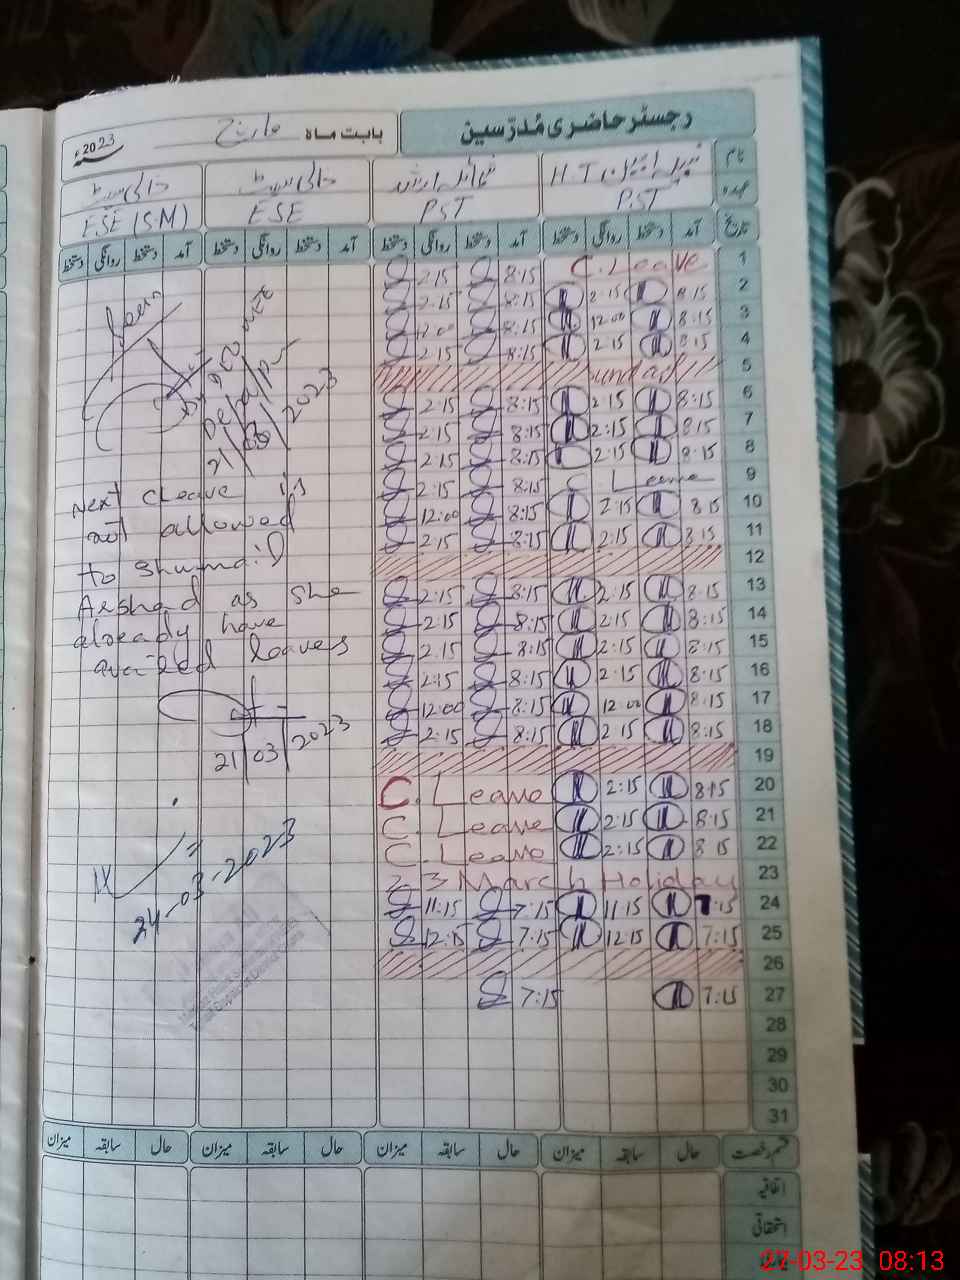 رجسٹر حاضری مُدرّسین
بابت ماہ مارچ سنہ 2023ء
نام
عہدہ
H.T
PST
PST
خالی سیٹ
ESE
خالی سیٹ
ESE (SM)
تاریخ آمد دستخط روانگی دستخط آمد دستخط روانگی دستخط آمد دستخط روانگی دستخط آمد دستخط روانگی دستخط
1 C. Leave 8:15 2:15
2 8:15 2:15 8:15 2:15
3 8:15 12:00 8:15 12:00
4 8:15 2:15 8:15 2:15
5
6 8:15 2:15 8:15 2:15
7 8:15 2:15 8:15 2:15
8 8:15 2:15 8:15 2:15
9 C Leave 8:15 2:15
10 8:15 2:15 8:15 12:00
11 8:15 2:15 8:15 2:15
12
13 8:15 2:15 8:15 2:15
14 8:15 2:15 8:15 2:15
15 8:15 2:15 8:15 2:15
16 8:15 2:15 8:15 2:15
17 8:15 12:00 8:15 12:00
18 8:15 2:15 8:15 2:15
19
20 8:15 2:15 C. Leave
21 8:15 2:15 C. Leave
22 8:15 2:15 C. Leave
23 23 March Holiday
24 7:15 11:15 7:15 11:15
25 7:15 12:15 7:15 12:15
26
27 7:15 7:15
28
29
30
31
21/03/2023
Next cleave is
not allowed
to Shumail
Arshad as she
already have
availed leaves
21/03/2023
24-03-2023
قسم رخصت حال سابقہ میزان حال سابقہ میزان حال سابقہ میزان حال سابقہ میزان
اتفاقیہ
استحقاقی
27-03-23 08:13